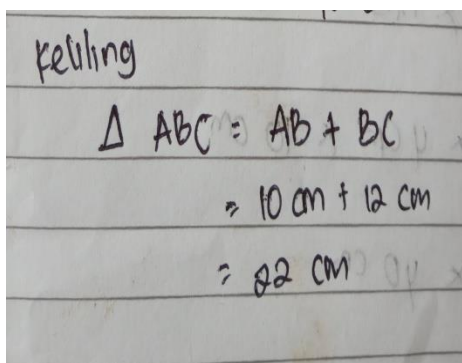 Keliling
Δ ABC = AB + BC
= 10 cm + 12 cm
= 22 cm